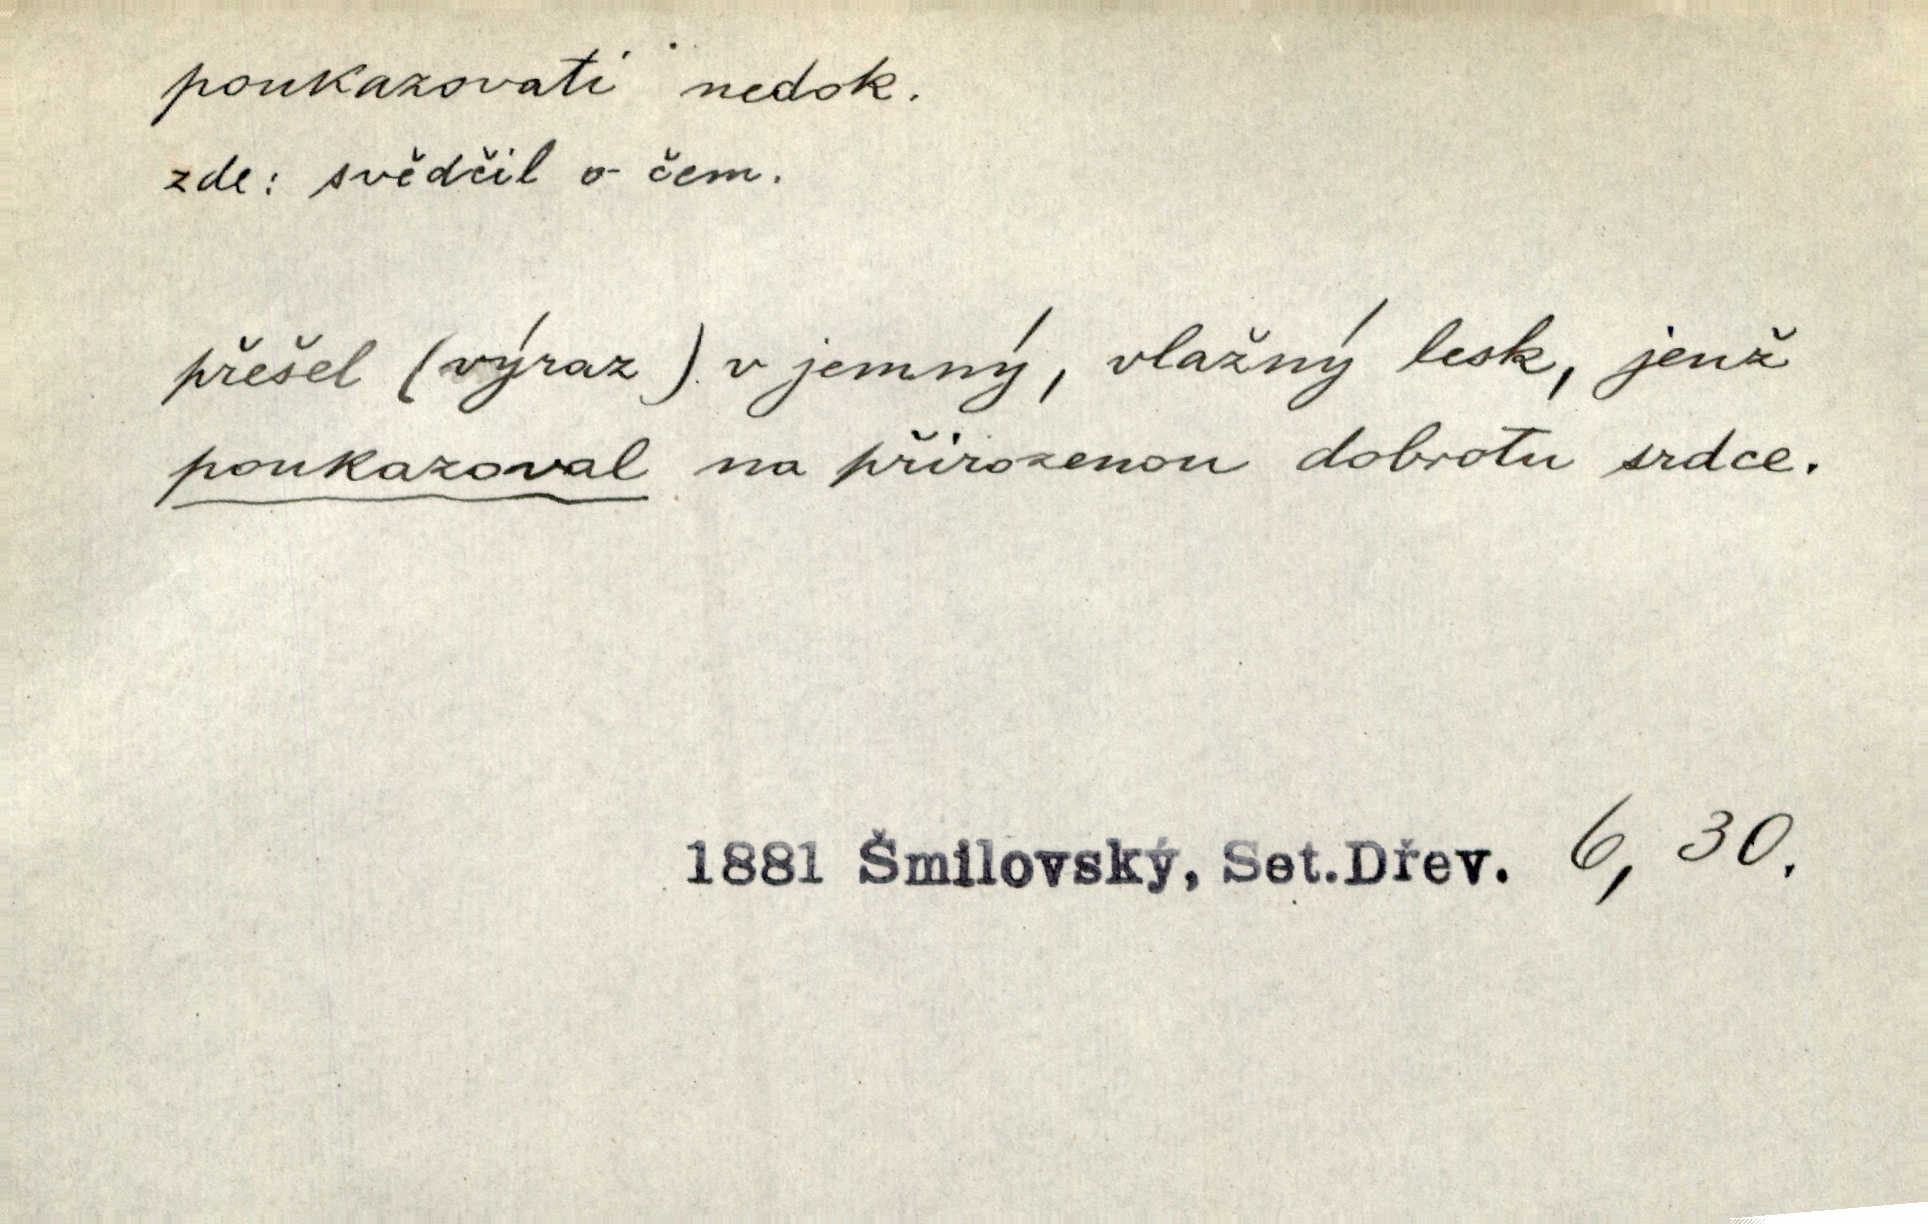 poukazovati nedok.
zde: svědčil o čem.
přešel (výraz) v jemný, vlažný lesk, jenž
poukazoval na přirozenou dobrotu srdce.
1881 Šmilovský, Set.Dřev. 6, 30.